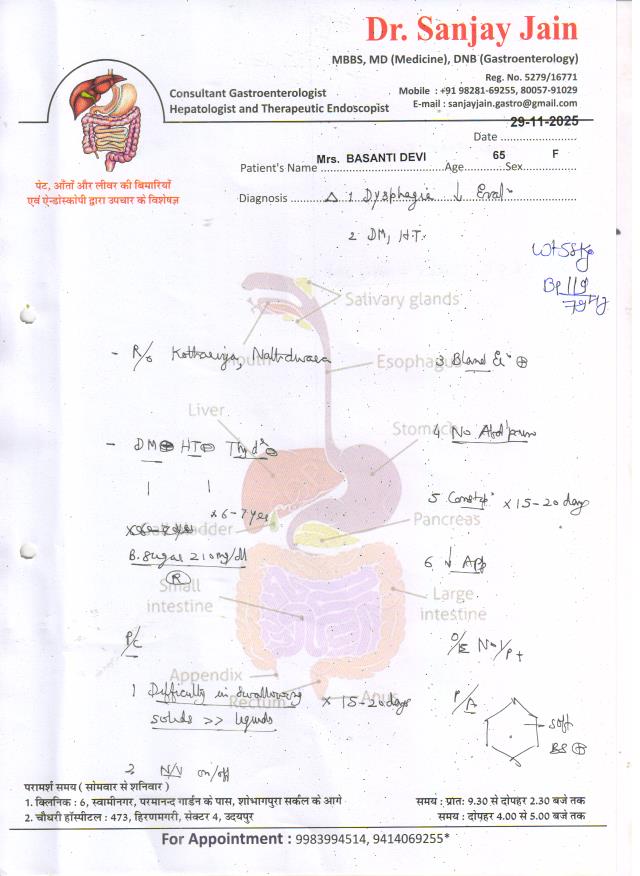 Dr. Sanjay Jain
MBBS, MD (Medicine), DNB (Gastroenterology)
Reg. No. 5279/16771
Mobile : +91 98281-69255, 80057-91029
E-mail : sanjayjain.gastro@gmail.com
Consultant Gastroenterologist
Hepatologist and Therapeutic Endoscopist
पेट, आँतों और लीवर की बिमारियाँ
एवं ऐन्डोस्कोपी द्वारा उपचार के विशेषज्ञ
29-11-2025
Date ......................
Patient's Name Mrs. BASANTI DEVI Age 65 Sex F
Diagnosis Δ 1 Dysphagia ↓ Eval
2 DM, HT
Wt 55kg
BP 119
79
Salivary glands
Mouth
Esophagus
- R/o Kothariya, Nathdwara
3 Bland
Liver
Stomach
4 No Abd pain
- DM⊕ HT⊕ Thyd
x 6-7 yrs
5 Constip x 15-20 days
Gall bladder
Pancreas
B. Sugar 210 mg/dl
(R)
6 ↓ App
Small
intestine
Large
intestine
P/C
O/E
Appendix
Rectum
Anus
1 Difficulty in Swallowing x 15-20 days
solids >> liquids
P/A
soft
BS ⊕
2 N/V on/off
परामर्श समय ( सोमवार से शनिवार )
1. क्लिनिक : 6, स्वामीनगर, परमानन्द गार्डन के पास, शोभागपुरा सर्कल के आगे समय : प्रातः 9.30 से दोपहर 2.30 बजे तक
2. चौधरी हॉस्पीटल : 473, हिरणमगरी, सेक्टर 4, उदयपुर समय : दोपहर 4.00 से 5.00 बजे तक
For Appointment : 9983994514, 9414069255*